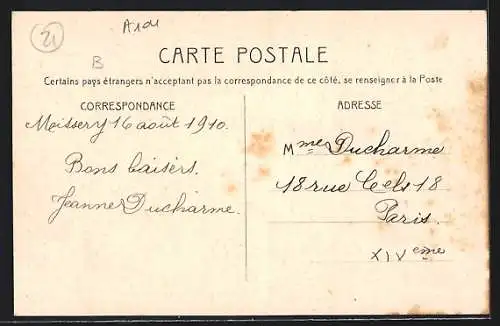 21
B
CARTE POSTALE
Certains pays étrangers n'acceptant pas la correspondance de ce côté, se renseigner à la Poste
CORRESPONDANCE
Meissery 16 août 1910.
Bons baisers.
Jeanne Ducharme.
ADRESSE
Mme Ducharme
18 rue Cels 18
Paris.
XIVeme